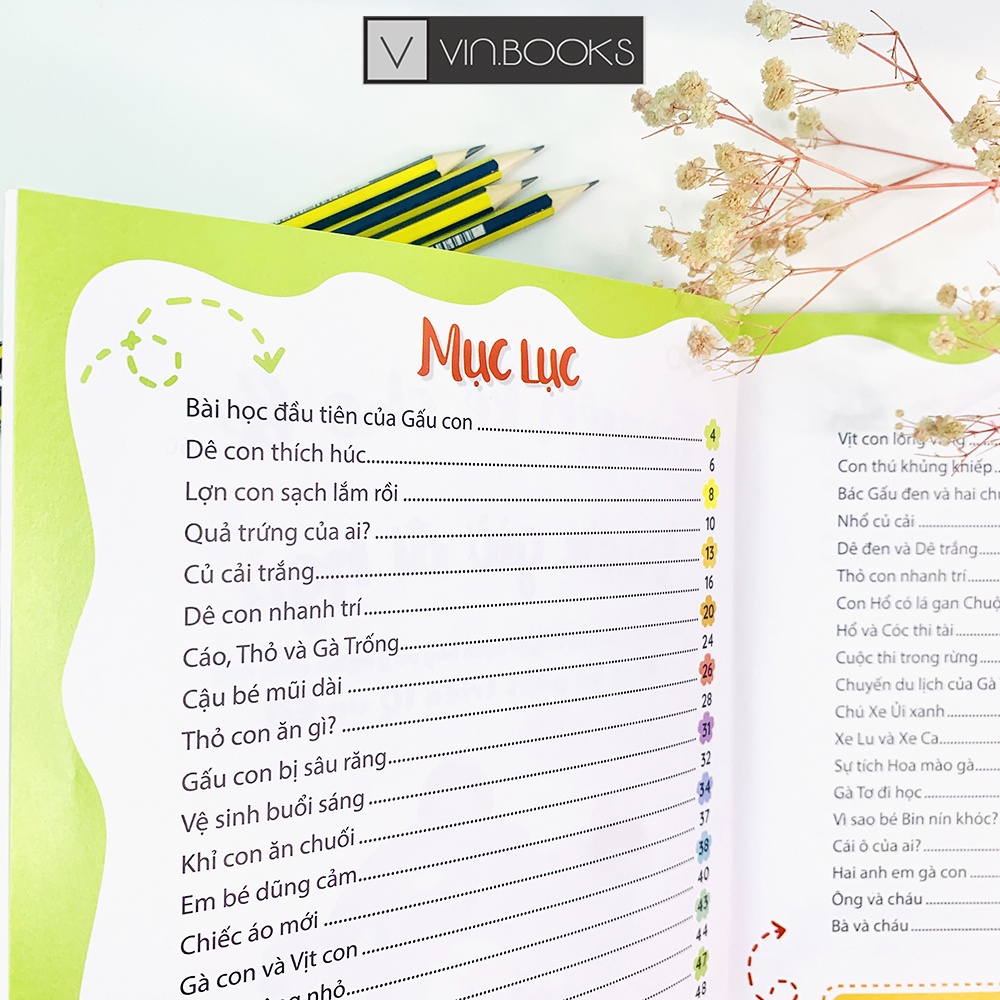 V VIN.BOOKS
Mục lục
Bài học đầu tiên của Gấu con 4
Dê con thích húc 6
Lợn con sạch lắm rồi 8
Quả trứng của ai? 10
Củ cải trắng 13
Dê con nhanh trí 16
Cáo, Thỏ và Gà Trống 20
Cậu bé mũi dài 24
Thỏ con ăn gì? 26
Gấu con bị sâu răng 28
Vệ sinh buổi sáng 31
Khỉ con ăn chuối 32
Em bé dũng cảm 34
Chiếc áo mới 37
Gà con và Vịt con 38
nhỏ 40
43
44
47
48
Vịt con lông
Con thú khủng khiếp
Bác Gấu đen và hai
Nhổ củ cải
Dê đen và Dê trắng
Thỏ con nhanh trí
Con Hổ có lá gan Chuột
Hổ và Cóc thi tài
Cuộc thi trong rừng
Chuyến du lịch của Gà
Chú Xe Ủi xanh
Xe Lu và Xe Ca
Sự tích Hoa mào gà
Gà Tơ đi học
Vì sao bé Bin nín khóc?
Cái ô của ai?
Hai anh em gà con
Ông và cháu
Bà và cháu